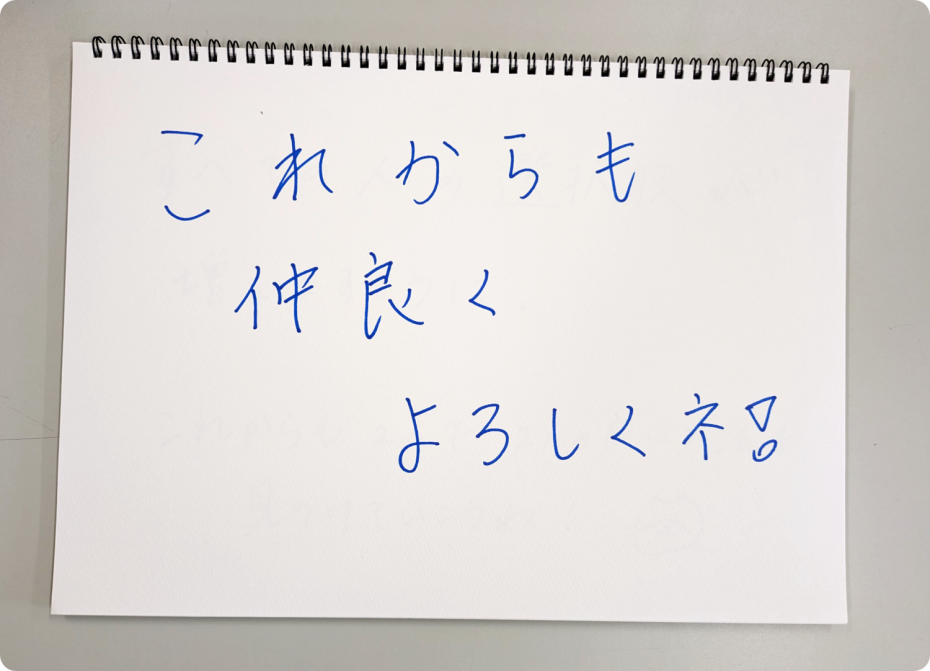 これからも
仲良く
よろしくネ!